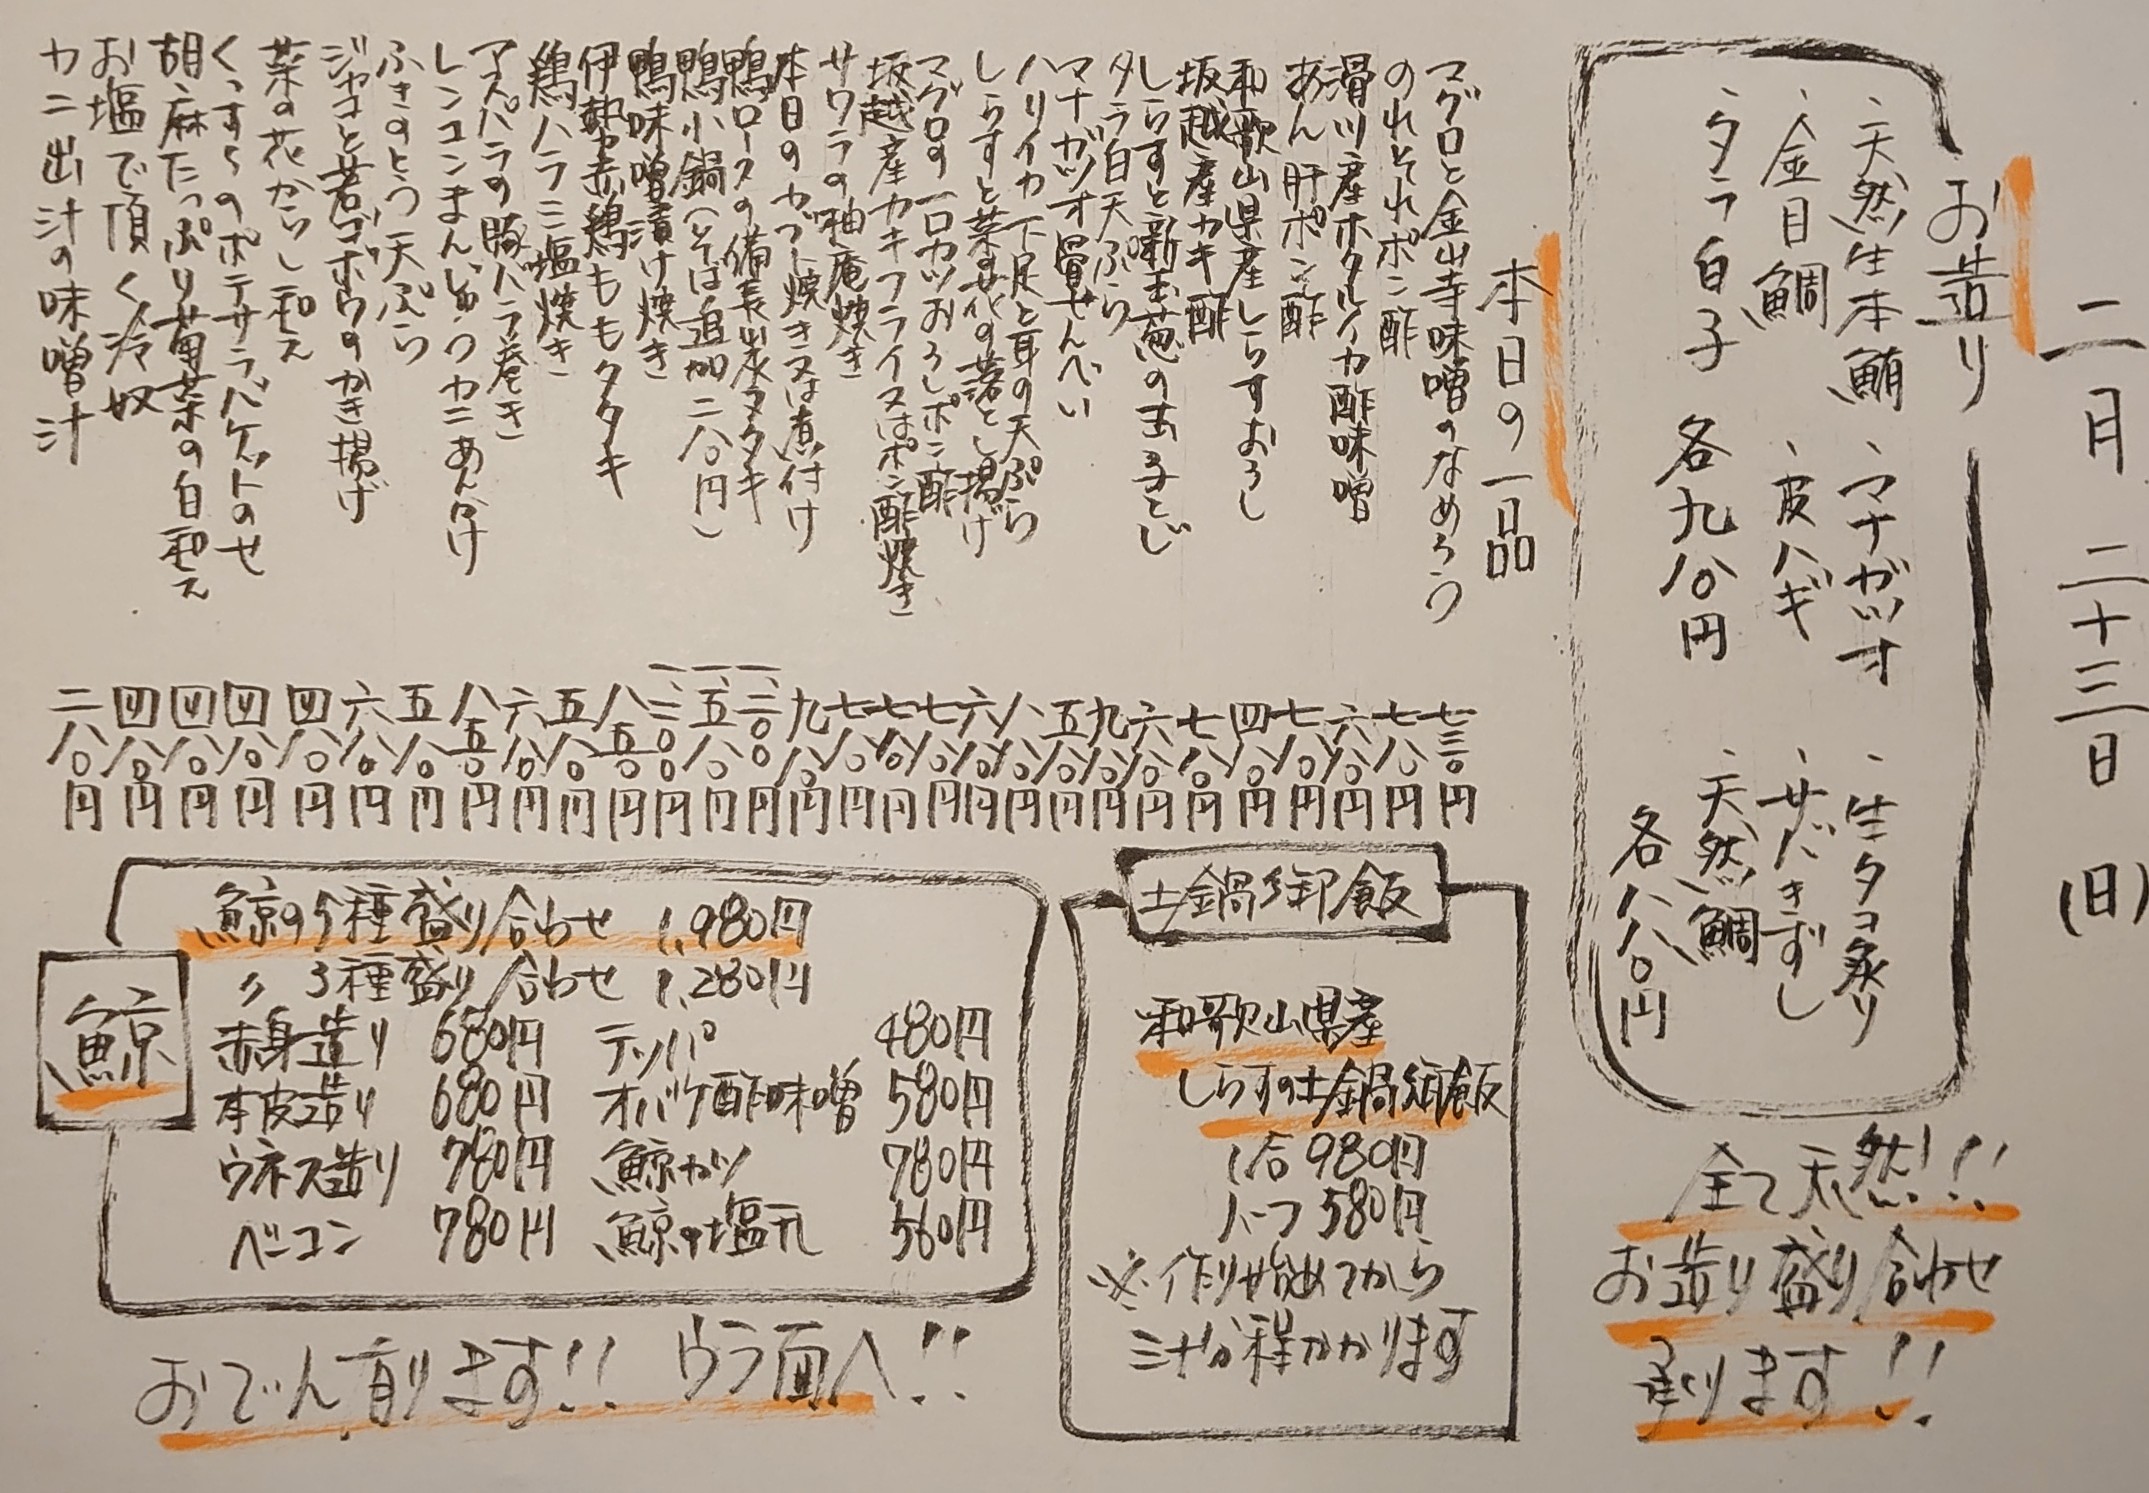 二月二十三日(日)
お造り
・天然生本鮪 ・マナガツオ ・生タコ炙り
・金目鯛 ・皮ハギ ・サバきずし
・タラ白子 各九八〇円 ・天然鯛 各八八〇円
全て天然!!
お造り盛り合わせ
承ります!!
本日の一品
マグロと金山寺味噌のなめろう 七三〇円
のれそれポン酢 七八〇円
滑川産ホタルイカ酢味噌 六八〇円
あん肝ポン酢 七八〇円
和歌山県産しらすおろし 四八〇円
坂越産カキ酢 七八〇円
しらすと新玉葱の玉子とじ 六八〇円
タラ白天ぷら 九八〇円
マナガツオ骨せんべい 五八〇円
ハリイカ下足と耳の天ぷら 八八〇円
しらすと菜の花の落とし揚げ 六八〇円
マグロの一口カツおろしポン酢 七八〇円
坂越産カキフライ又はポン酢焼き 七八〇円
サワラの柚庵焼き 七八〇円
本日のカブト焼き又は煮付け 九八〇円
鴨ロースの備長炭タタキ 一、二〇〇円
鴨小鍋(そば追加二八〇円) 一、五八〇円
鴨味噌漬け焼き 一、二〇〇円
伊勢赤鶏ももタタキ 八五〇円
鶏ハラミ塩焼き 五八〇円
アスパラの豚バラ巻き 六八〇円
レンコンまんじゅうカニあんかけ 八五〇円
ふきのとう天ぷら 五八〇円
ジャコと若ゴボウのかき揚げ 六八〇円
菜の花からし和え 四八〇円
くっすらのポテサラバゲットのせ 四八〇円
胡麻たっぷり菊菜の白和え 四八〇円
お塩で頂く冷奴 四八〇円
カニ出汁の味噌汁 二八〇円
土鍋御飯
和歌山県産
しらすの土鍋御飯
1合 980円
ハーフ 580円
※作り始めてから
三十分程かかります
鯨
鯨の5種盛り合わせ 1,980円
〃 3種盛り合わせ 1,280円
赤身造り 680円 テッパ 480円
本皮造り 680円 オバケ酢味噌 580円
ウネス造り 780円 鯨カツ 780円
ベーコン 780円 鯨の塩元 560円
おでん有ります!! ウラ面へ!!